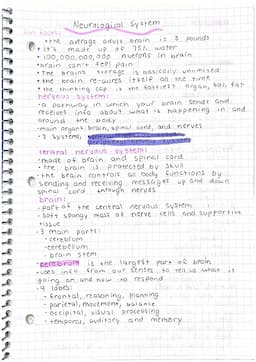 Neurological System
fun facts:
• the average adult brain is 3 pounds
• it's made up of 75% water
• 100,000,000,000 nuerons in brain
• brain can't feel pain
• The brains storage is basically unlimited
• the brain re-wires itself all the time
• the thinking cap is the fattiest organ, 60% fat
nervous system:
- a pathway in which your brain sends and
receives info about what is happening in and
around the body
- main organs: brain, spinal cord, and nerves
- 2 systems:
central nervous system:
- made of brain and spinal cord
- the brain is protected by skull
- the brain controls all body functions by
sending and receiving messages up and down
spinal cord through nerves
brain:
- part of the central nervous system
- soft spongy mass of nerve cells and supportive
tissue
- 3 main parts:
- cerebrum
- cerebellum
- brain stem
- cerebrum is the largest part of brain
- uses info from our senses to tell us what is
going on and how to respond
- 4 lobes:
• frontal, reasoning, planning
• parietal, movement, balance
• occipital, visual processing
• temporal, auditory and memory